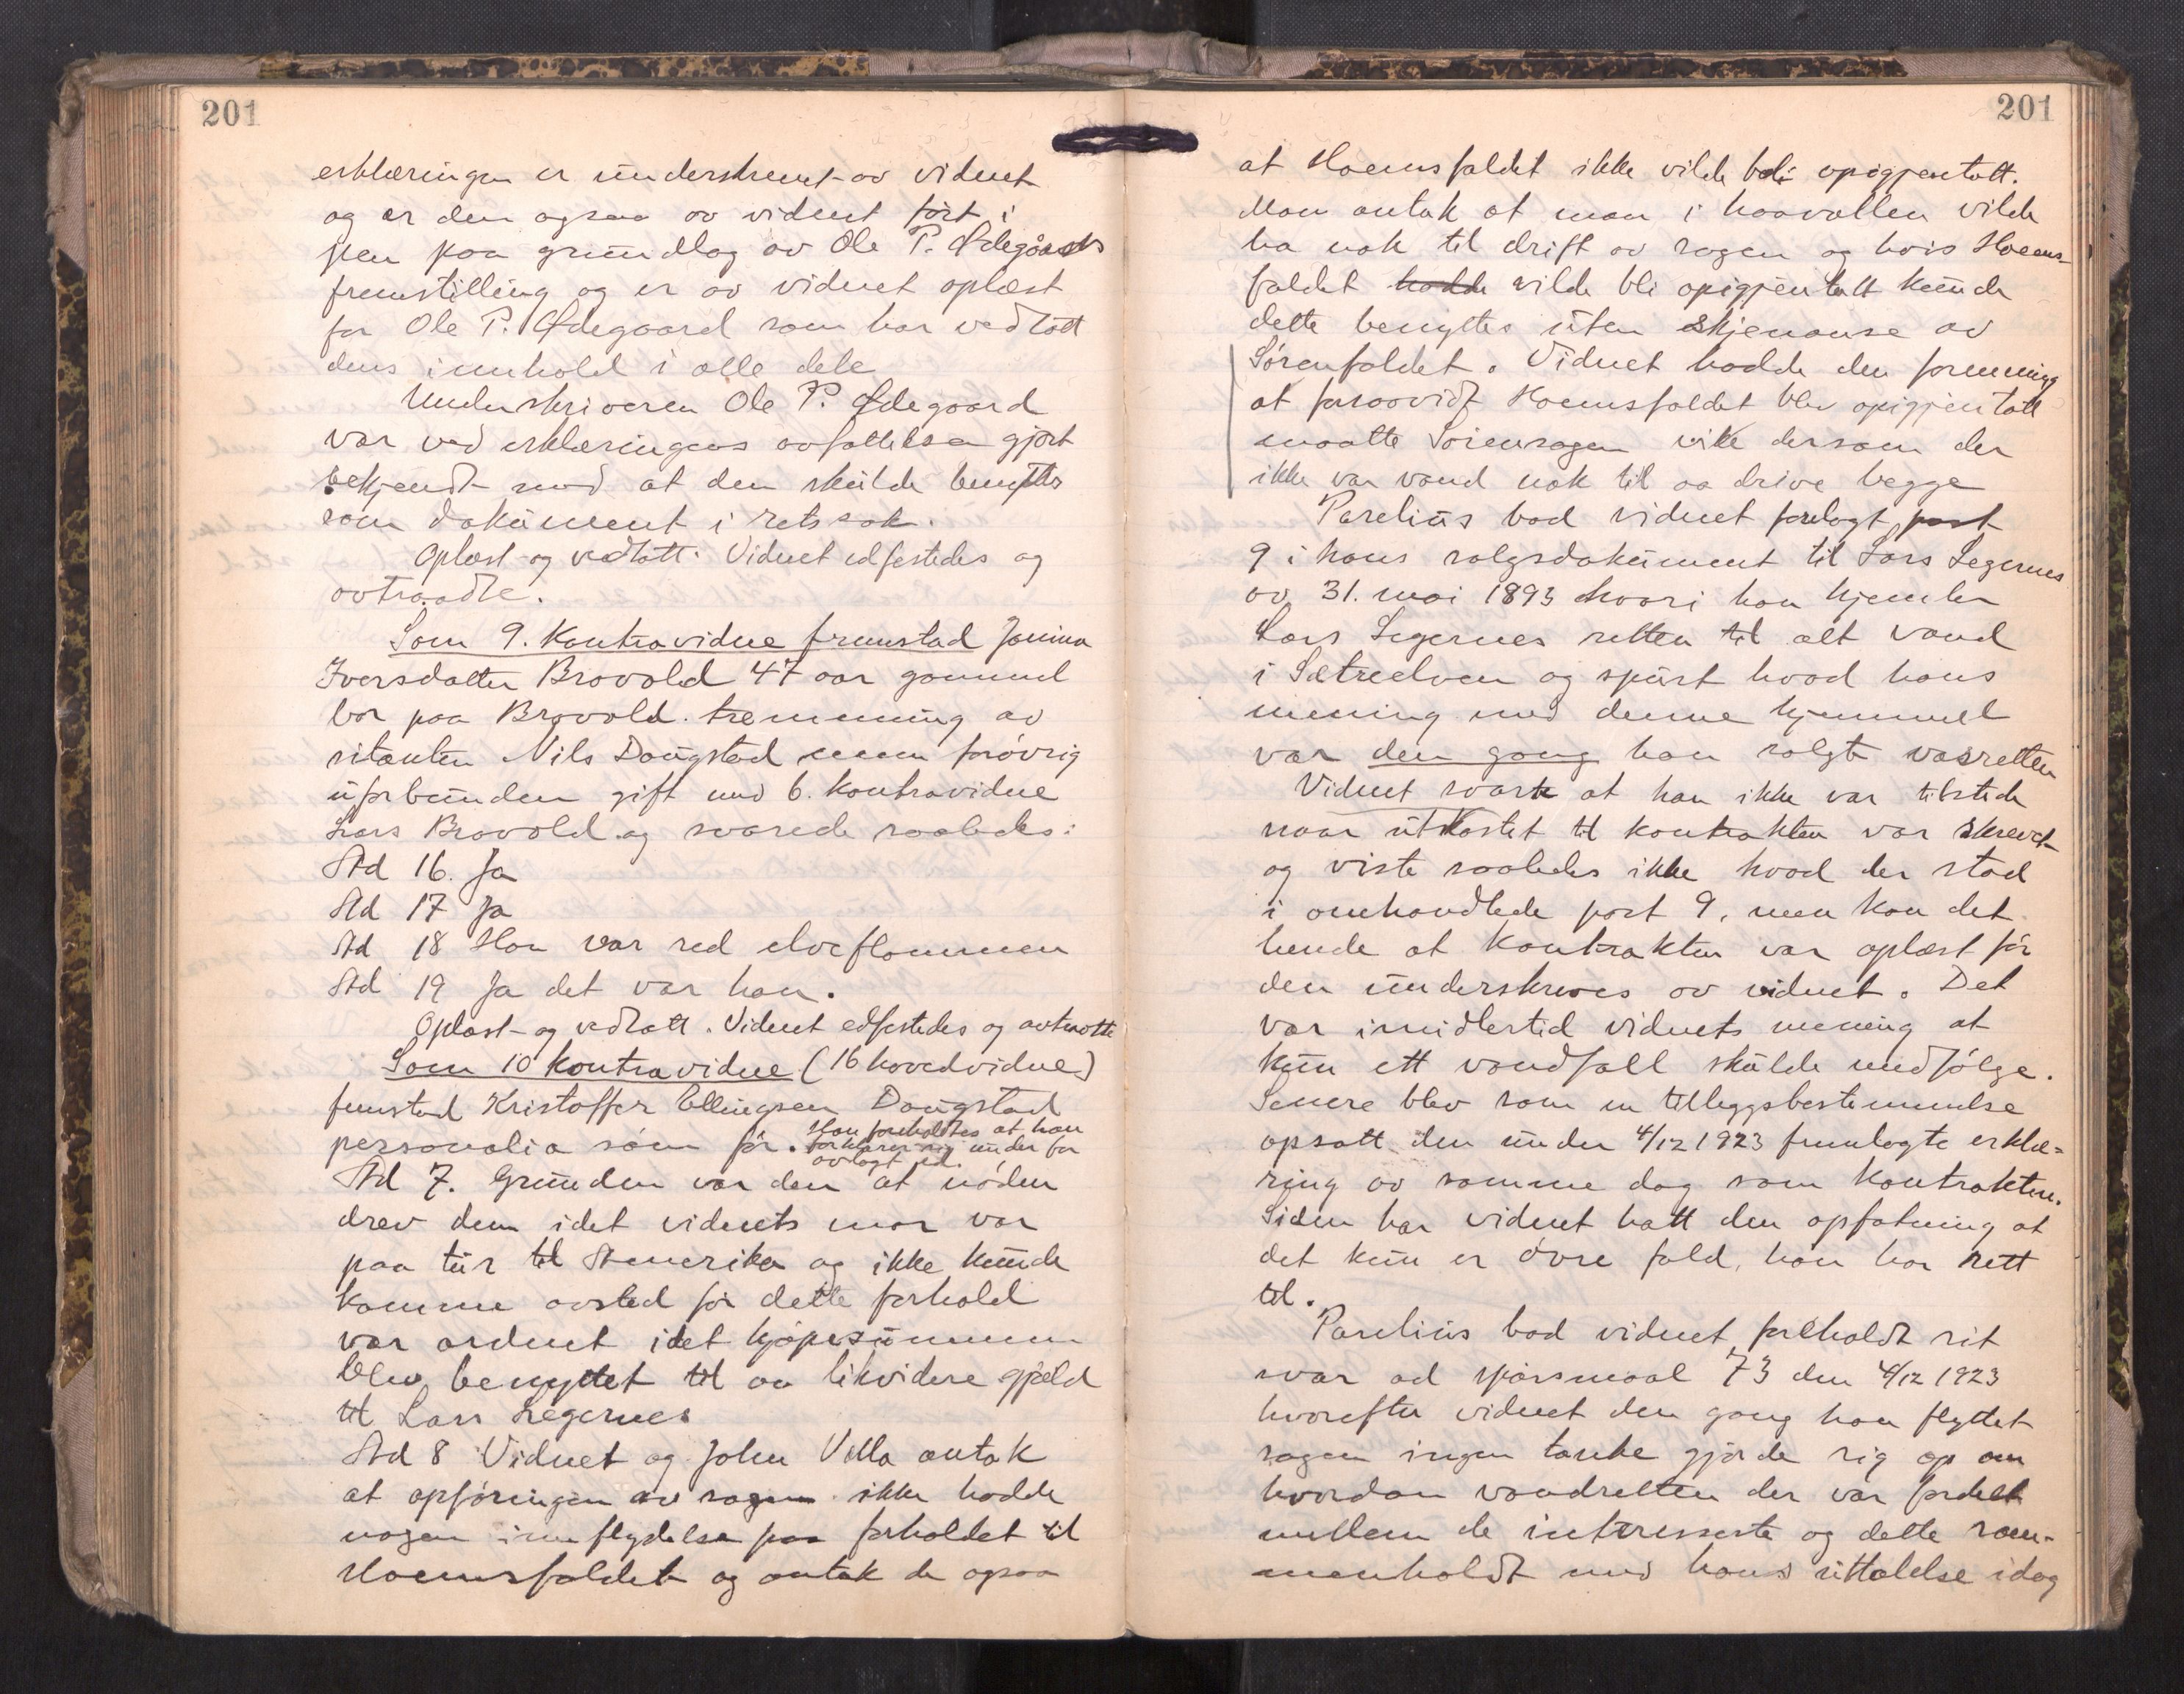 201
erklæringen er underskrevet av vidnet
og er den ogsaa av vidnet ført i
pen paa grundlag av Ole P. Ødegårds
fremstilling og er av vidnet oplæst
for Ole P. Ødegaard som har vedtatt
dens innhold i alle dele
Underskriveren Ole P. Ødegaard
var ved erklæringens avfattelse gjort
bekjendt med at den skulde benyttes
som dokument i retssak.
Oplæst og vedtatt. Vidnet edfestedes og
avtraadte.
Som 9. Kontravidne fremstod Janina
Iversdatter Brovold 47 aar gammel
bor paa Brovold. tremenning av
sitanten Nils Dougstad men forøvrig
uforbunden gift med 6. kontravidne
Lars Brovold og svarede saaledes:
Ad 16. Ja
Ad 17 Ja
Ad 18 Han var red elveflommen
Ad 19 Ja det var han.
Oplæst og vedtatt. Vidnet edfestedes og avtraatte
Som 10 kontravidne (16 hovedvidne)
fremstod Kristoffer Ellingsen Dougstad
personalia som før. Han foreholdtes at han
forklarer sig under før
avlagt ed.
Ad 7. Grunden var den at nøden
drev dem idet vidnets mor var
paa tur til Amerika og ikke kunde
komme avsted før dette forhold
var ordnet idet kjøpesummen
blev benyttet til aa likvidere gjæld
til Lars Legernes
Ad 8 Vidnet og John Villa antok
at opføringen av sagen ikke hadde
nogen innflydelse paa forholdet til
Hoemsfaldet og antok de ogsaa
201
at Hoemsfaldet ikke vilde bli opigjentatt.
Man antok at man i haavollen vilde
ha nok til drift av sagen og hvis Hoems-
faldet hadde vilde bli opigjentatt kunde
dette benyttes uten skjenanse av
Sørenfaldet. Vidnet hadde den formening
at forsaavidt Hoemsfaldet blev opigjentatt
maatte Sørensagen vike dersom der
ikke var vand nok til aa drive begge
Parelius bad vidnet forelagt post
9 i hans salgsdokument til Lars Legernes
av 31. mai 1893 hvori han hjemler
Lars Legernes retten til alt vand
i Sætreelven og spurt hvad hans
mening med denne hjemmel
var den gang han solgte vasretten
Vidnet svarte at han ikke var tilstede
naar utkastet til kontrakten var skrevet
og viste saaledes ikke hvad der stod
i omhandlede post 9, men kan det
hende at kontrakten var oplæst før
den underskreves av vidnet. Det
var imidlertid vidnets mening at
kun ett vandfall skulde medfølge.
Senere blev som en tilleggsbestemmelse
opsatt den under 4/12 1923 fremlagte erklæ-
ring av samme dag som kontrakten.
Siden har vidnet hatt den opfatning at
det kun er øvre fald, han har rett
til.
Parelius bad vidnet foreholdt sit
svar ad spørsmaal 73 den 4/12 1923
hvorefter vidnet den gang han flyttet
sagen ingen tanke gjorde sig op om
hvordan vandretten der var fordelt
mellem de interesserte og dette sam-
menholdt med hans uttalelse idag